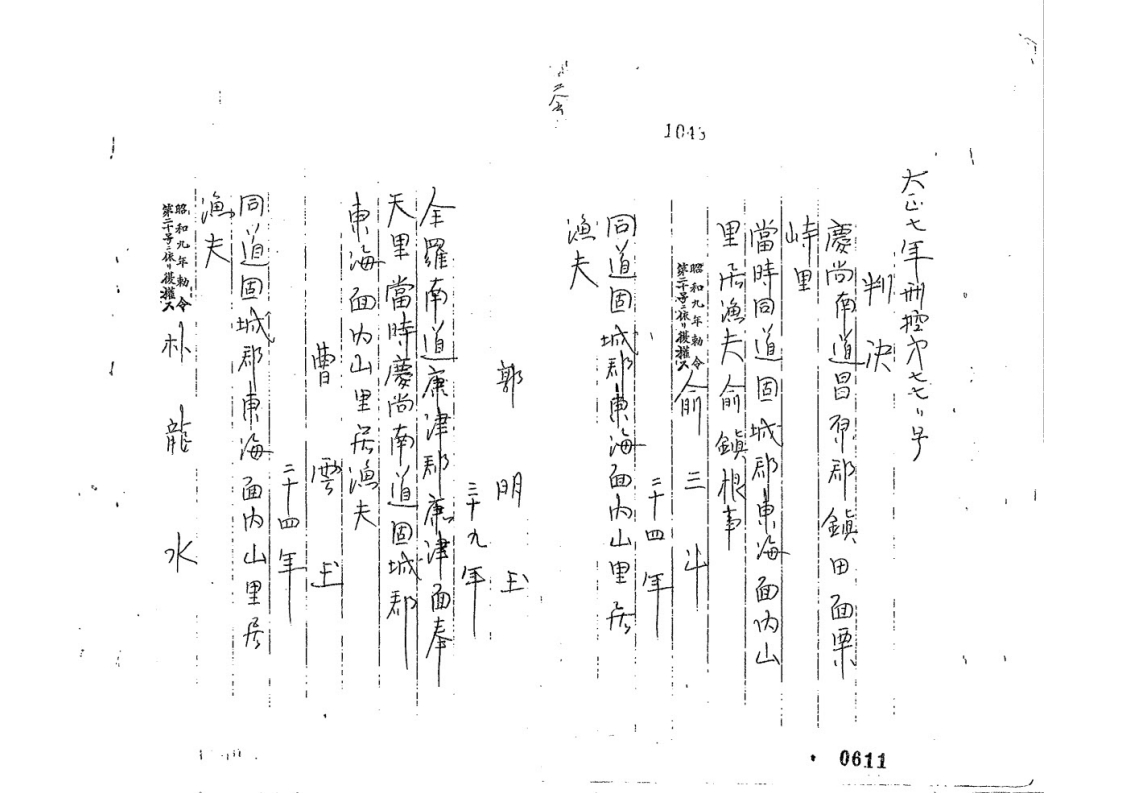 1043
大正七年刑控第七七二号
判決
慶尚南道昌原郡鎮田面栗
峙里
當時同道固城郡東海面内山
里居漁夫俞鎮根事
昭和九年勅令
第二十号ニ依リ復権ス
俞三斗
二十四年
同道固城郡東海面内山里居
漁夫
郭明玉
三十九年
全羅南道康津郡康津面奉
天里當時慶尚南道固城郡
東海面内山里居漁夫
曹雲玉
二十四年
同道固城郡東海面内山里居
漁夫
昭和九年勅令
第二十号ニ依リ復権ス
朴龍水
0611